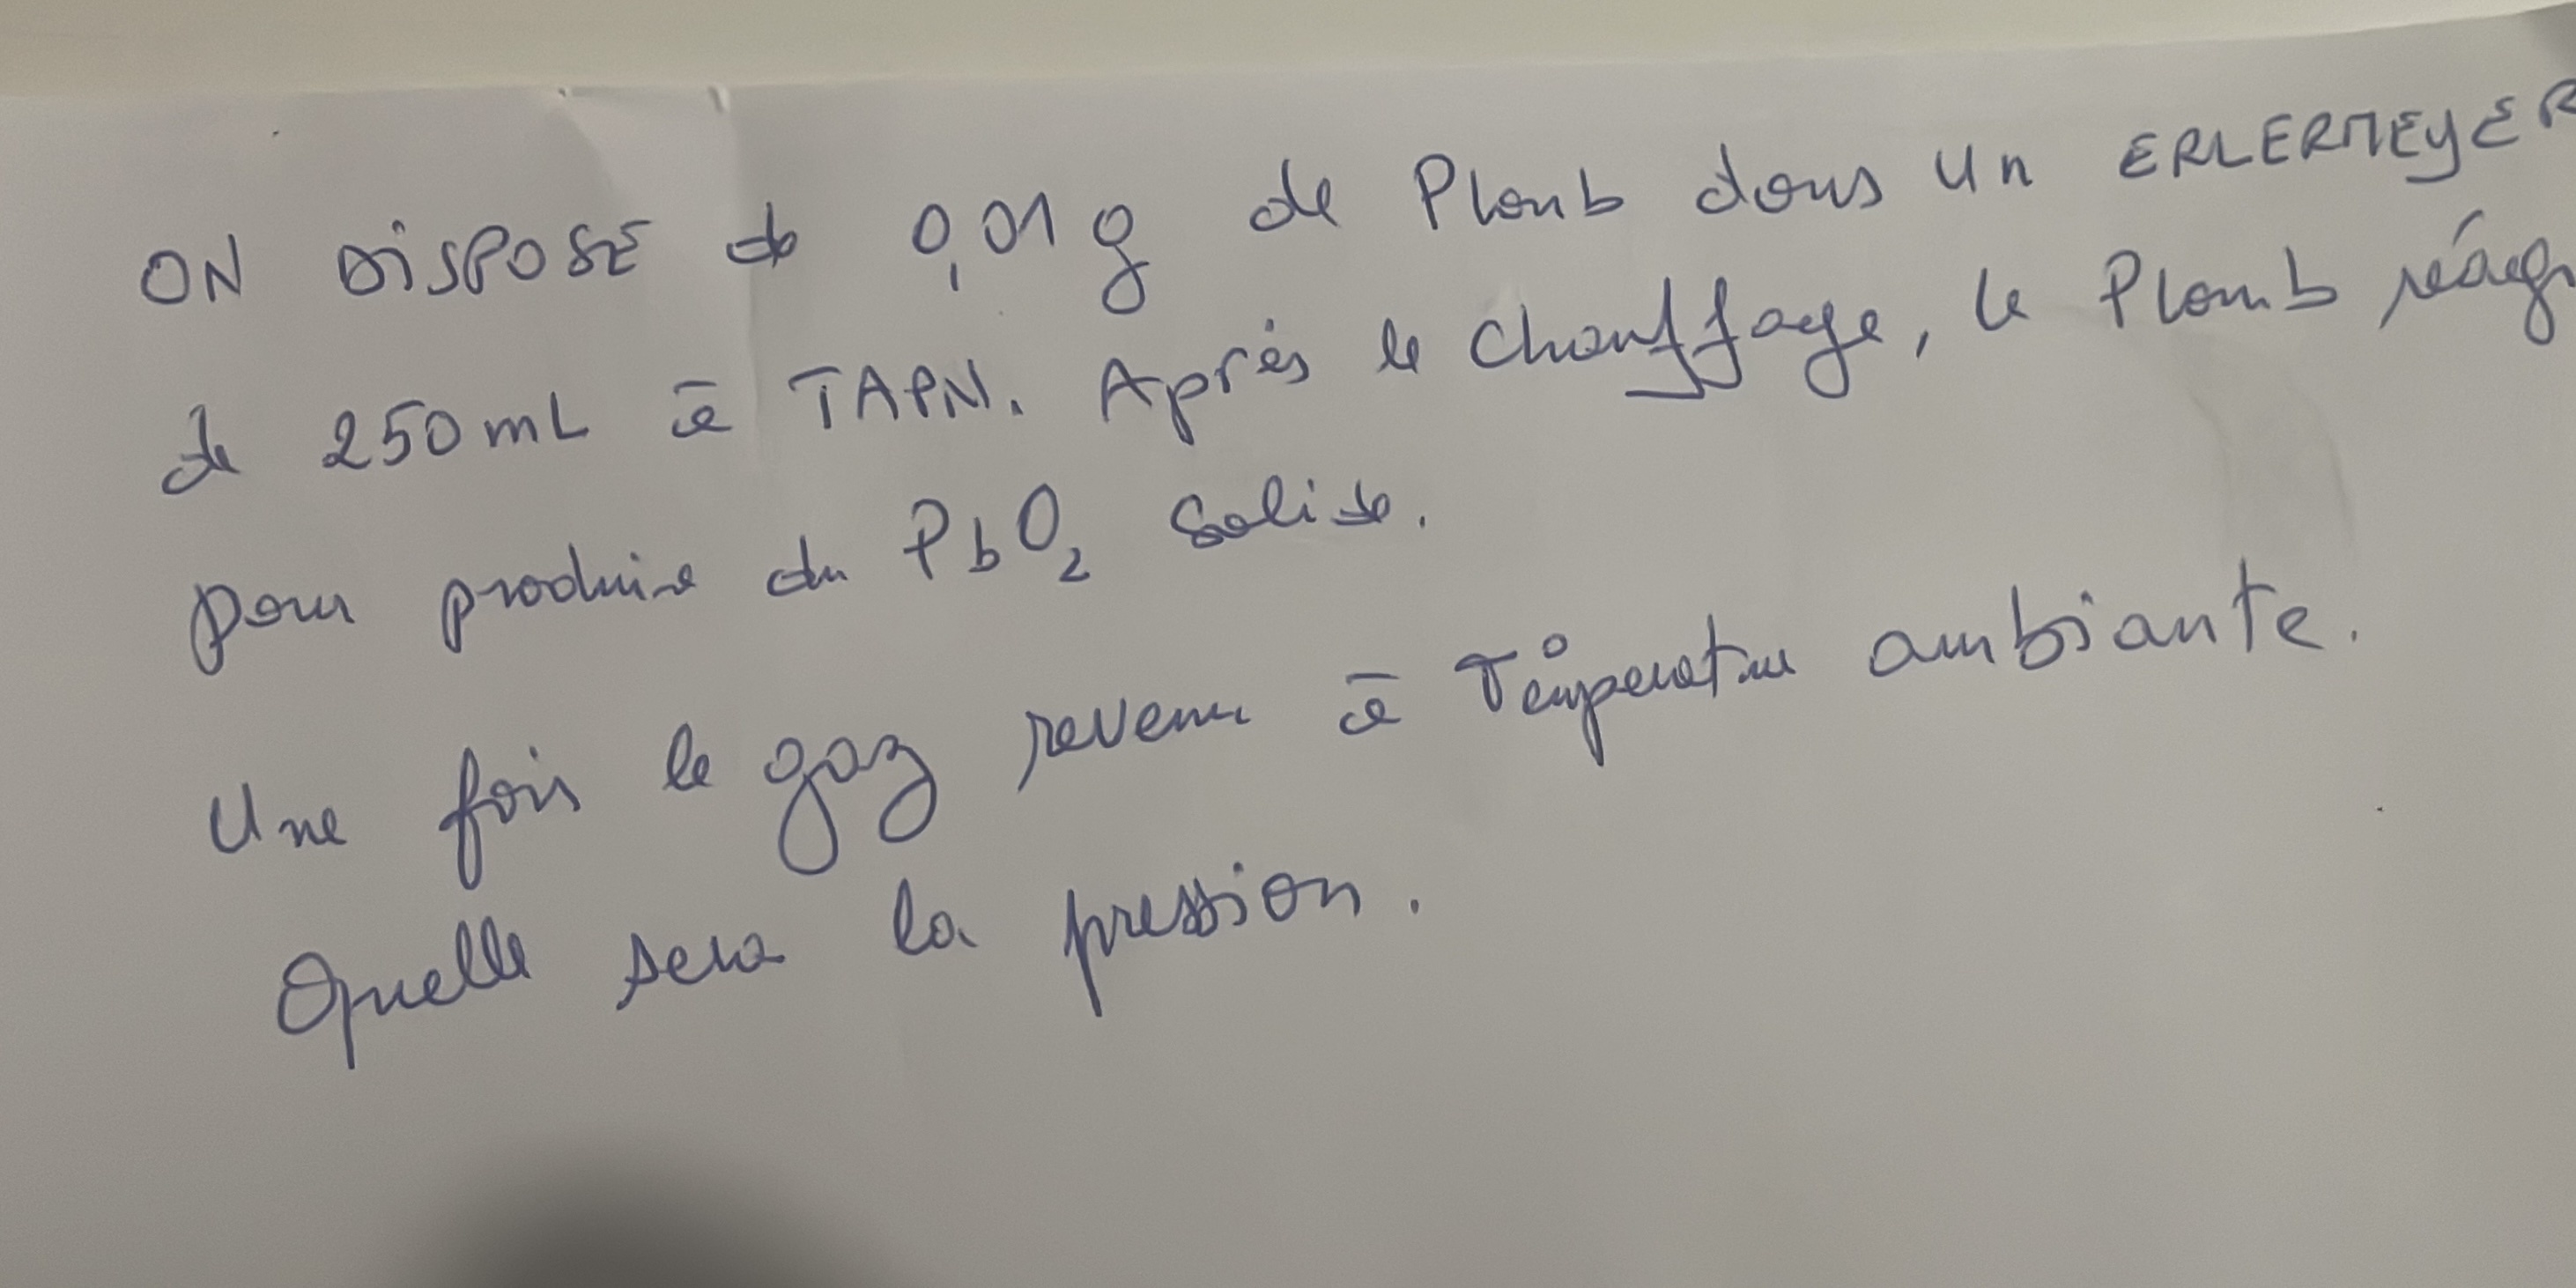 ON DISPOSE de 0,01 g de Plomb dans un ERLERMEYER
de 250 mL à TAPN. Après le chauffage, le Plomb réagi
pour produire du PbO₂ solide.
Une fois le gaz revenu à Température ambiante.
Quelle sera la pression.